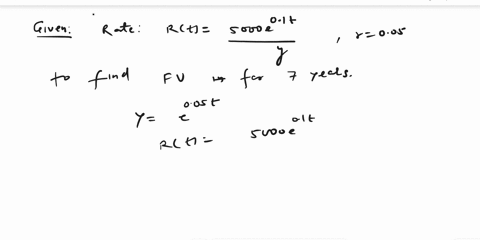 Given: Rate: R(t) = 5000e^0.1t / y , r=0.05
to find FV ↳ for 7 years.
y = e^0.05t
R(t) = 5000e^0.1t